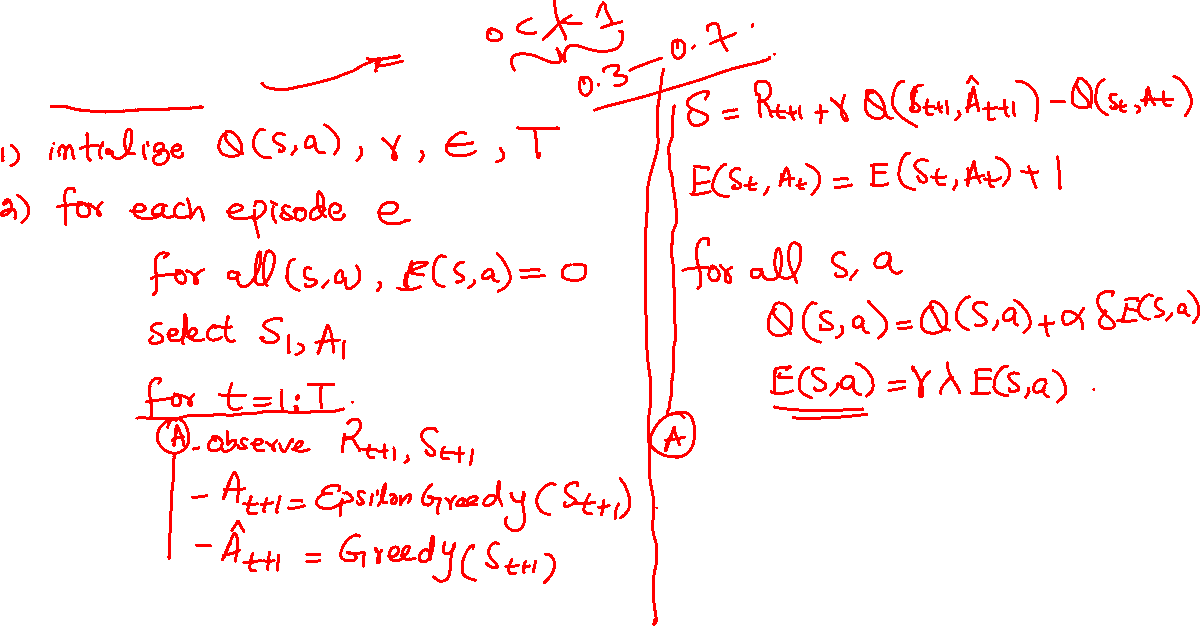 0 < λ < 1
0.3 — 0.7.
1) intialize Q(S,a), γ, ε, T
2) for each episode e
for all (S,a), E(S,a) = 0
select S₁, A₁
for t=1:T.
Ⓐ - observe Rₜ₊₁, Sₜ₊₁
- Aₜ₊₁ = Epsilon Greedy (Sₜ₊₁)
- Âₜ₊₁ = Greedy (Sₜ₊₁)
δ = Rₜ₊₁ + γ Q(Sₜ₊₁, Âₜ₊₁) - Q(Sₜ, Aₜ)
E(Sₜ, Aₜ) = E(Sₜ, Aₜ) + 1
for all s, a
Q(S,a) = Q(S,a) + α δ E(S,a)
E(S,a) = γ λ E(S,a) .
Ⓐ